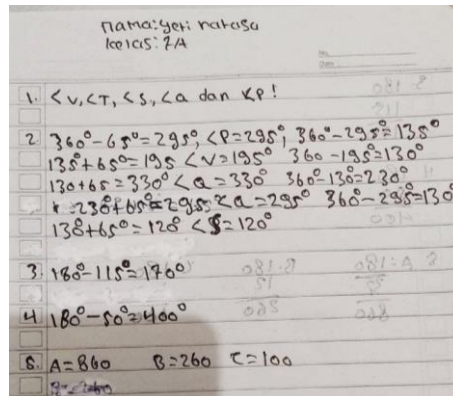 nama: yeri natasa
kelas: 7A
No.
Date
1. <v, <T, <s, <a dan <p!
2 360°-65°=295°, <P=295°, 360°-295°=135°
135°+65°=195 <v=195° 360-195°=130°
130+65=330° <a=330° 360°-130=230°
230°+65°=295, <a=295° 360°-295=130
130+65°=120° <S=120°
3. 180°-115°=170°
4 180°-50°=400°
5. A=860 B=260 C=100